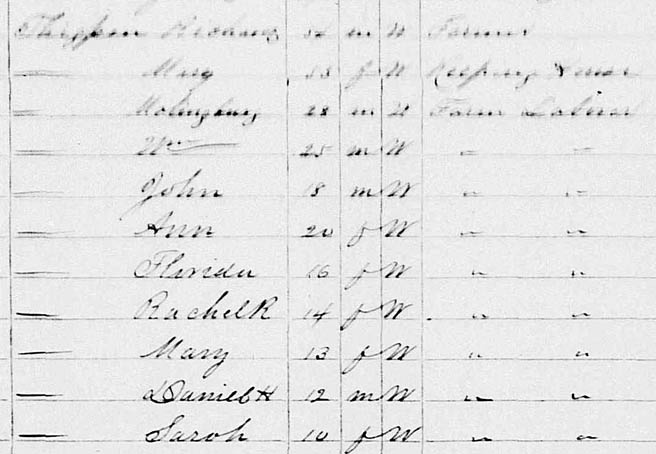 Thigpen 52 m W Farmer
— Mary 53 f W Keeping House
— 28 m W Farm Laborer
— Wm 25 m W " "
— John 18 m W " "
— Ann 20 f W " "
— Florida 16 f W " "
— Rachel R 14 f W " "
— Mary 13 f W " "
— Daniel H 12 m W " "
— Sarah 10 f W " "